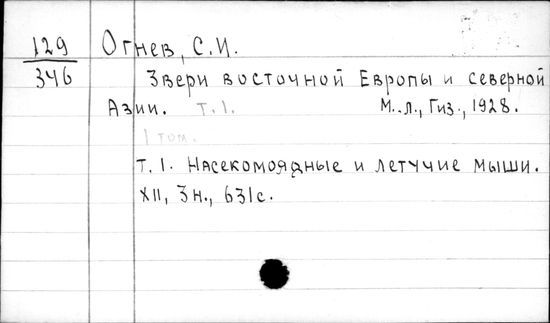 129 Огнев, С.И.
346 Звери восточной Европы и северной
Азии. Т.1. М.-Л., Гиз., 1928.
1 том.
Т.1. Насекомоядные и летучие мыши.
XII, 3н., 631с.